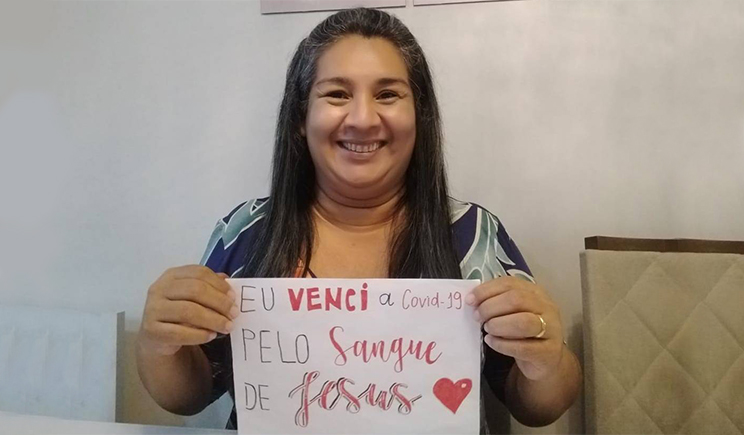 EU VENCI a Covid-19
PELO Sangue
DE Jesus